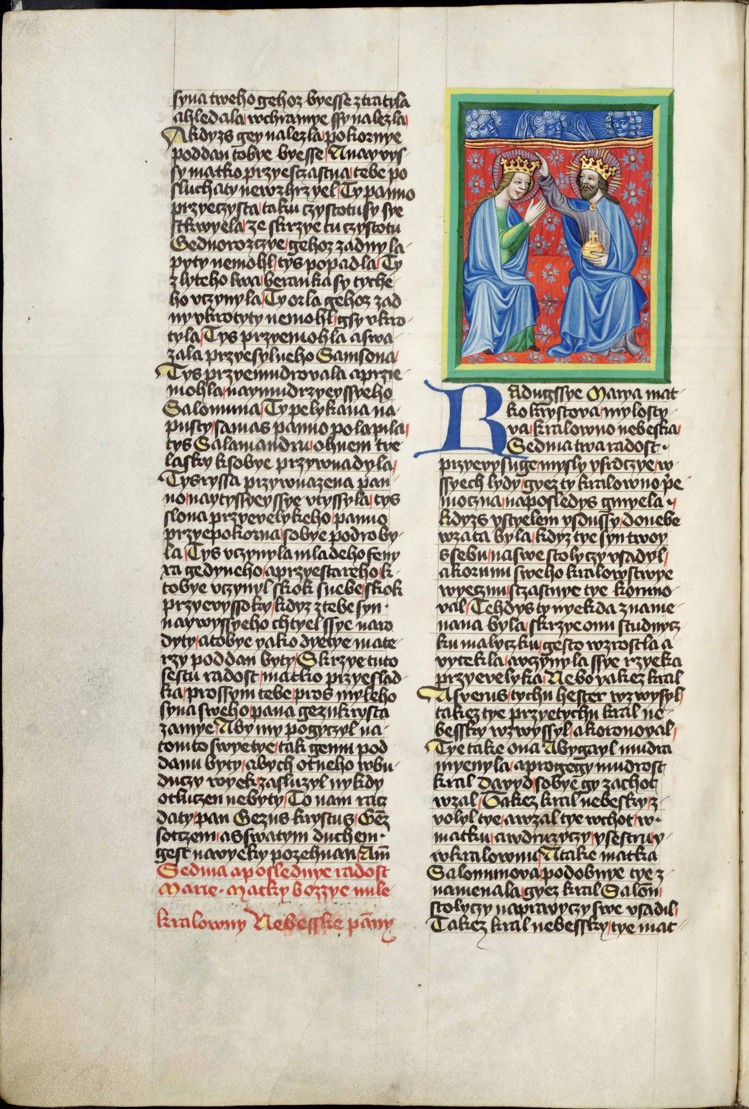 syna tweho gehoz byesse ztratyla
a hledala wchramye ssy nalezla
A kdyzs gey nalezla pokornye
poddan tobye byesse A nay wys
sy matko przyesczastna tebe po
sluchaty newzhrzyel Ty panno
przyeczysta taku czystotu sy sye
stkwyela ze skrzye tu czystotu
Gednorozczye gehoz zadny la
pyty nemohl tys popadla Ty
z lyteho lwa beranka sy tyche
ho vczynyla Ty orla gehoz zad
ny vkrotyty nemohl gsy vkro
tyla Tys przyemohla a swa
zala przyesylneho Samsona
Tys przyemudrovala a przie
mohla naymudrzyeyssyeho
Salomuna Ty pelykana na
pusty sama s panno polapila
tys Salamandru ohnem twe
lasky ksobye przywnadyla
Tys ryssa przywnazena pan
no naytyssyeyssye vtyssyla tys
slona przyevelykeho panno
przyepokorna sobye podroby
la Tys vczynyla mladeho feny
xa gedyneho a przyestareho k
tobye vczynyl skok s nebe skok
przyevyssoky kdyz z tebe syn
naywyssyeho chtyel ssye naro
dyty a tobye yako dyetye mate
rzy poddan byty Skrzye tuto
sestu radost matko przyeslad
ka prossym tebe pros myleho
syna sweho pana gezukrysta
za mye Aby my pogyczyl na
tomto swyetye tak gemu pod
danu byty abych otneho wbu
duczy wyek zasluzyl nykdy
otluczen nebyty To nam racz
daty pan Gezus krystus Genz
s otczem a s swatym duchem
gest nawyeky pozehnan Am
Sedma a poslednye radost
Marie Matky bozzye mile
kralowny Nebesske panny
Radugssye Marya mat
ko krystova mylosty
va kralowno nebeska
Sedma twa radost
przyevysuge mysly vsrdczye w
ssyech lydy gyez ty kralowno pe
moczna naposledys gmyela
kdyzs ystyelem ydussy donebe
wzata byla kdyz tye syn twoy
s sebu na swe stolyczy vsadyl
a korunu sweho kralowstwye
wyeczni sczastnye tye koruno
val Tehdys ty nyekda zname
nana byla skrzye onu studnycz
ku malyczku gesto wzrostla a
vytekla a vczynyla ssye rzyeka
przyevelyka Nebo yakez kral
Asverus tychu hester wzwysyl
takez tye przyetychu kral ne
bessky wzwyssyl a koronoval
Tye take ona Abygayl mudra
myenyla a progegy mudrost
kral Davyd sobye gy zachot
wzal Takez kral nebesky z
volyl tye a wzal tye wchot w
matku a wdruzyczy y sestru y
wkralownu A take matka
Salomunova podobnye tye z
namenala gyez kral Salom
stolyczy napravyczy swe vsadil
Takez kral nebessky tye mat